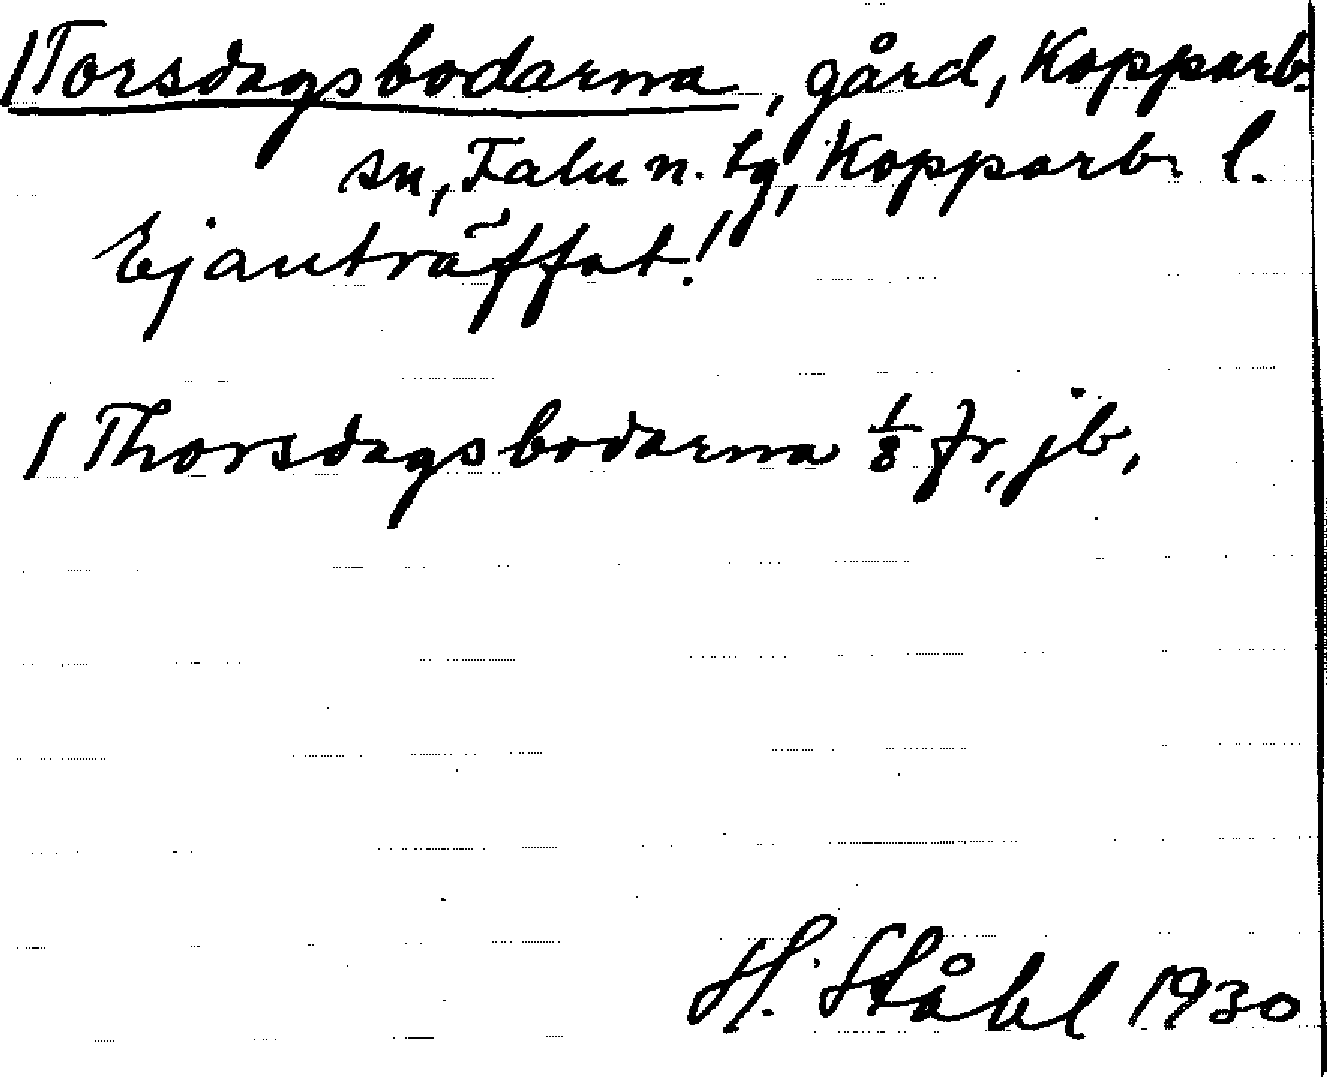 /Torsdagsbodarna, gård, Kopparb.
sn, Falu n. tg, Kopparb. l.
Ej anträffat!
/ Thorsdagsbodarna 1/8 fr, jb,
H. Ståhl 1930